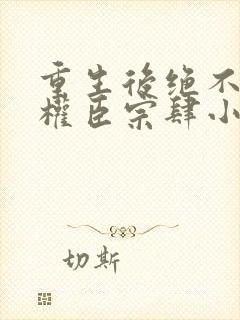 重生後绝不
權臣宗肆小
切斯